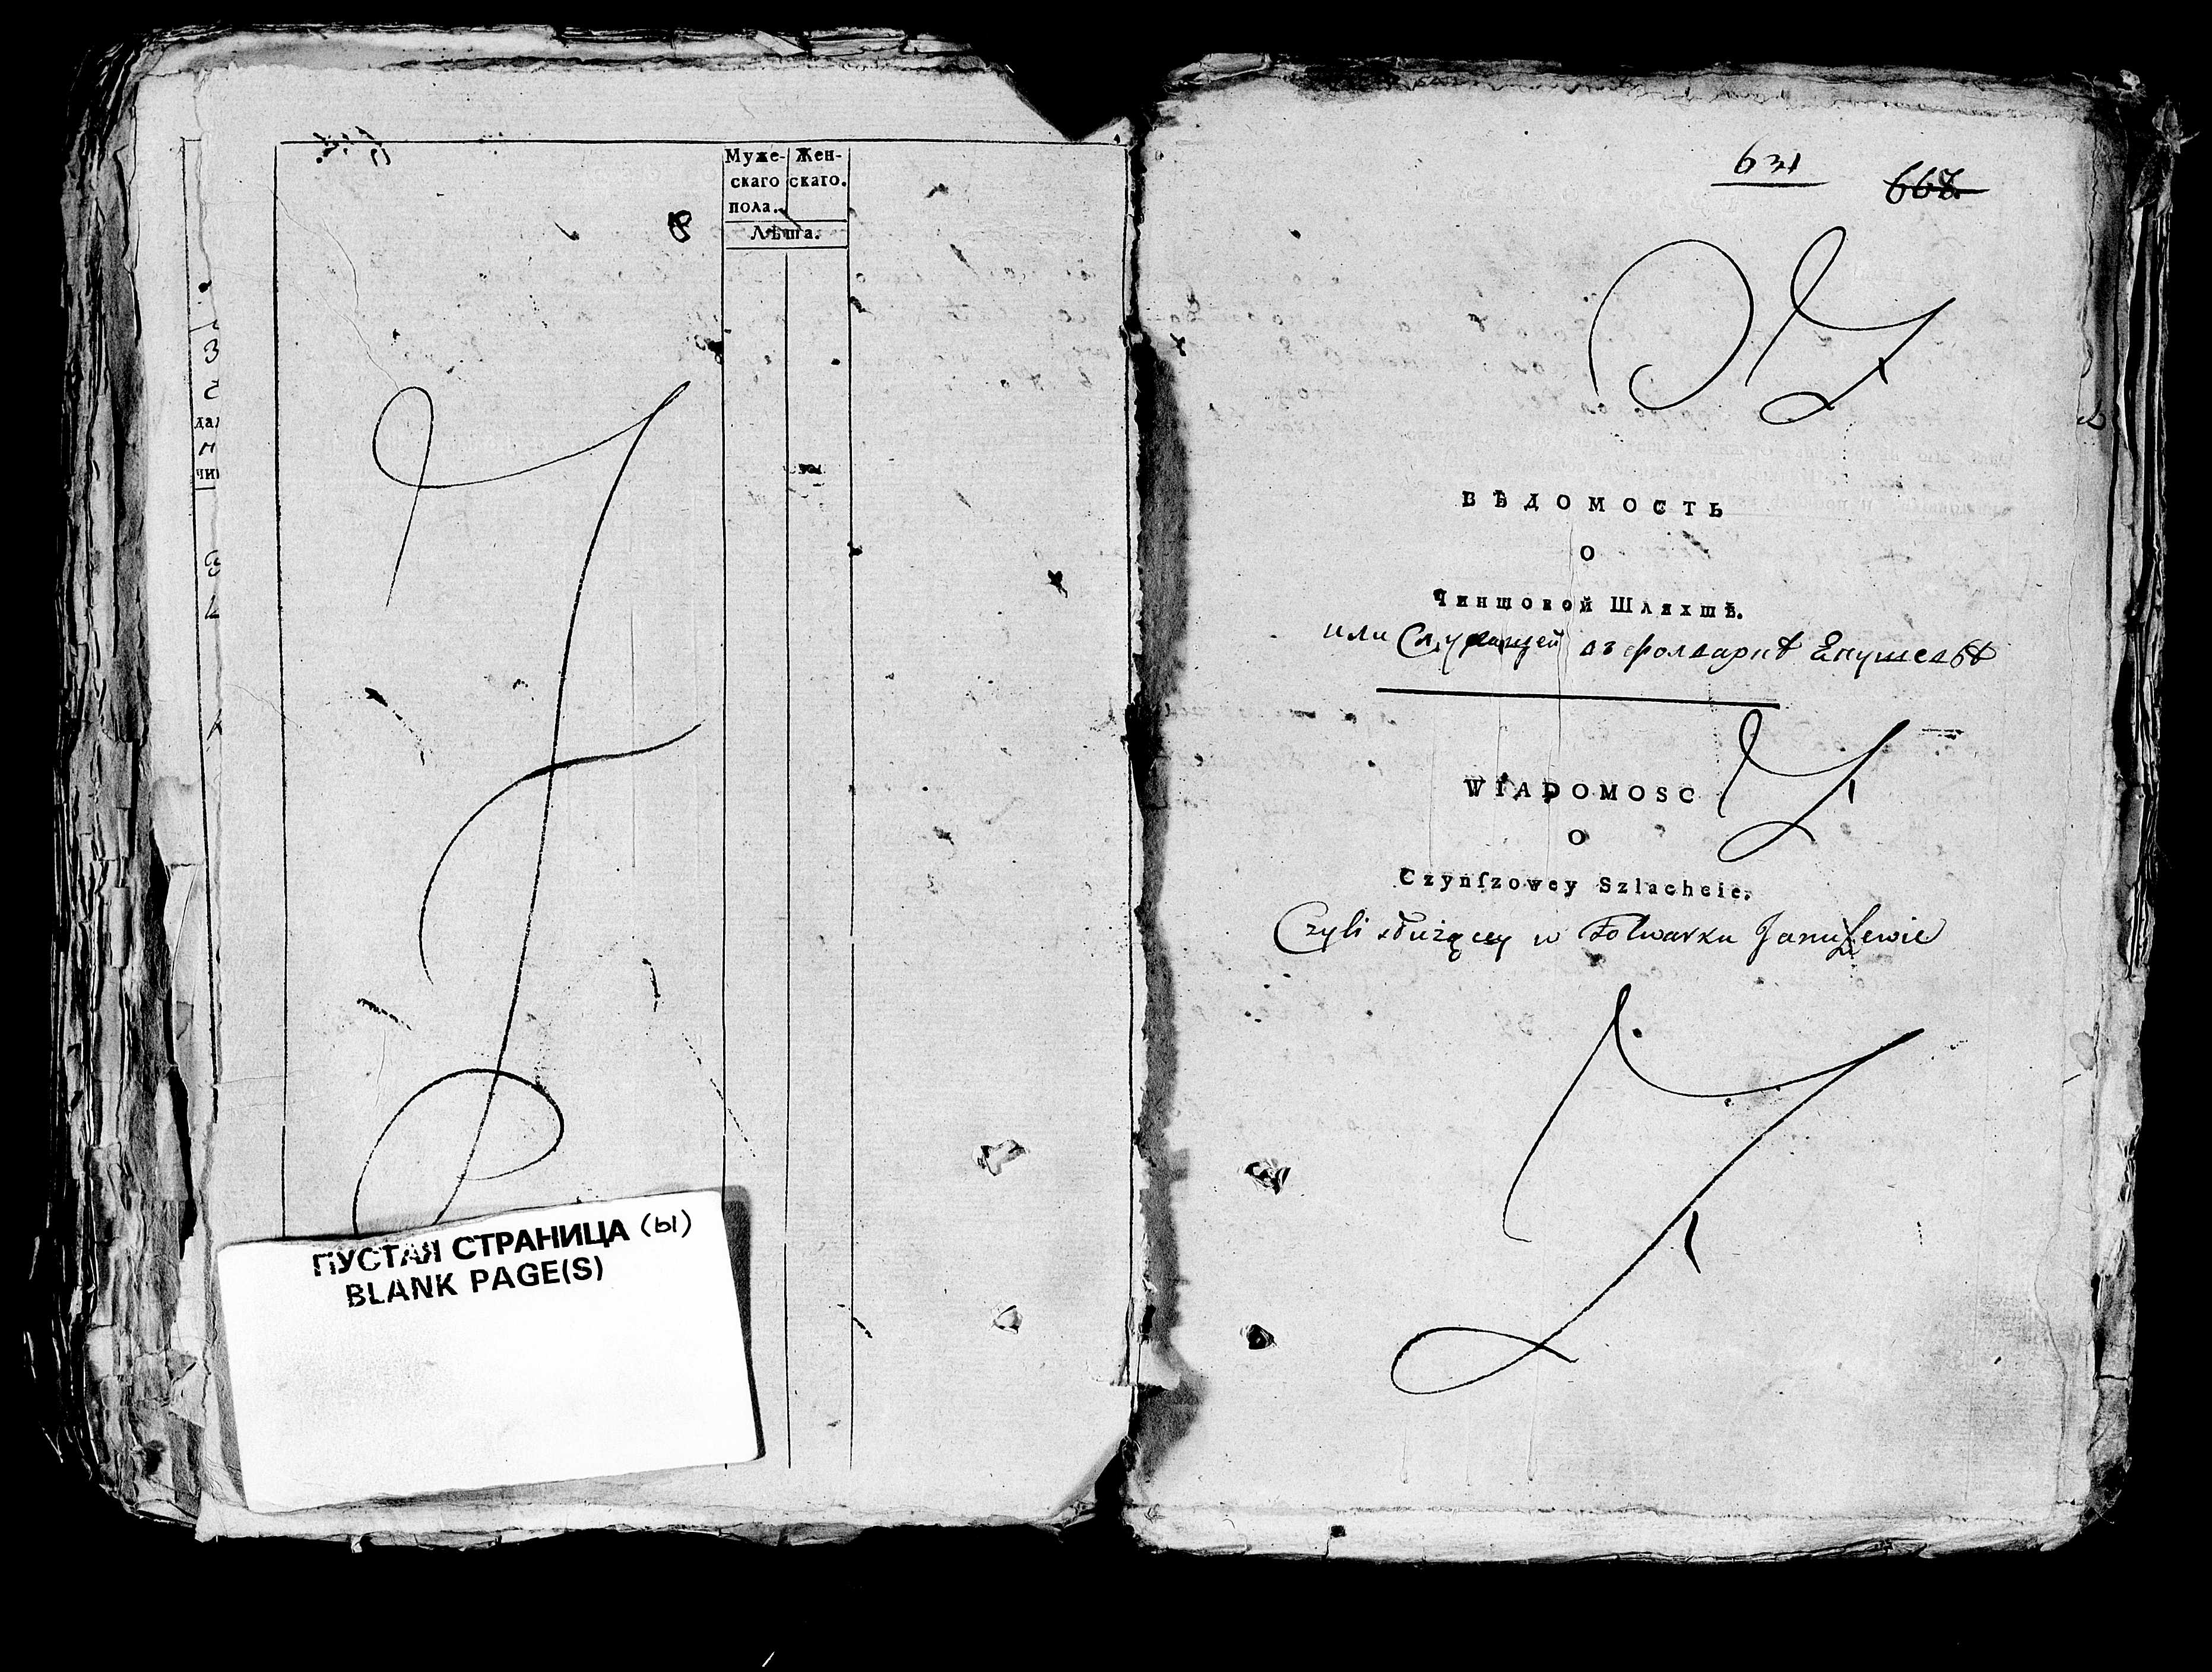 Муже- Жен-
скаго скаго.
пола.
Лѣта.
ПУСТАЯ СТРАНИЦА (Ы)
BLANK PAGE(S)
631
667.
ВѢДОМОСТЬ
О
Чиншовой Шляхтѣ.
или Служащей въ фолваркѣ Енушевѣ
WIADOMOSC
O
Czynſzowey Szlachcie.
Czyli służącey w Folwarku Januſzewie